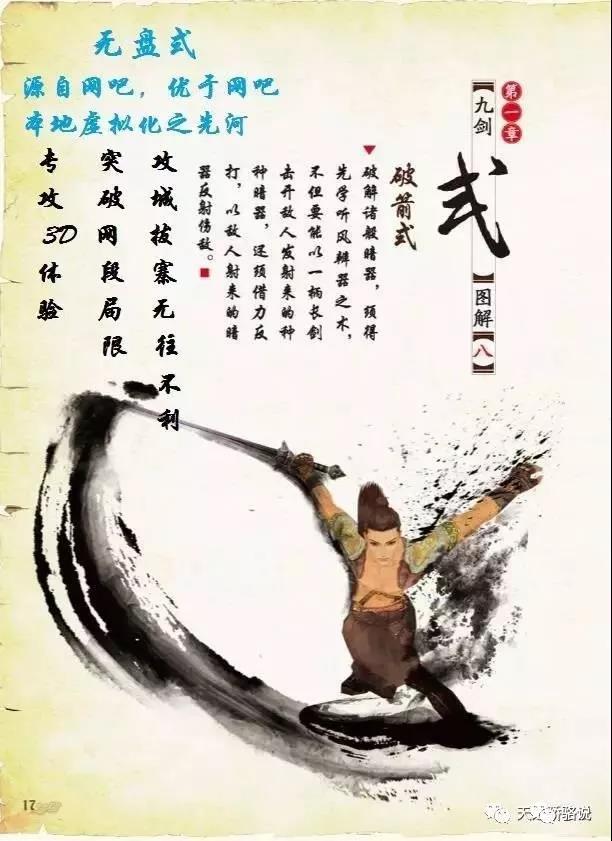 无盘式
源自网吧，优于网吧
本地虚拟化之先河
攻城拔寨无往不利
突破网段局限
专攻3D体验
第一章
九剑
式
图解
八
破箭式
破解诸般暗器，须得
先学听风辨器之术，
不但要能以一柄长剑
击开敌人发射来的种
种暗器，还须借力反
打，以敌人射来的暗
器反射伤敌。
17